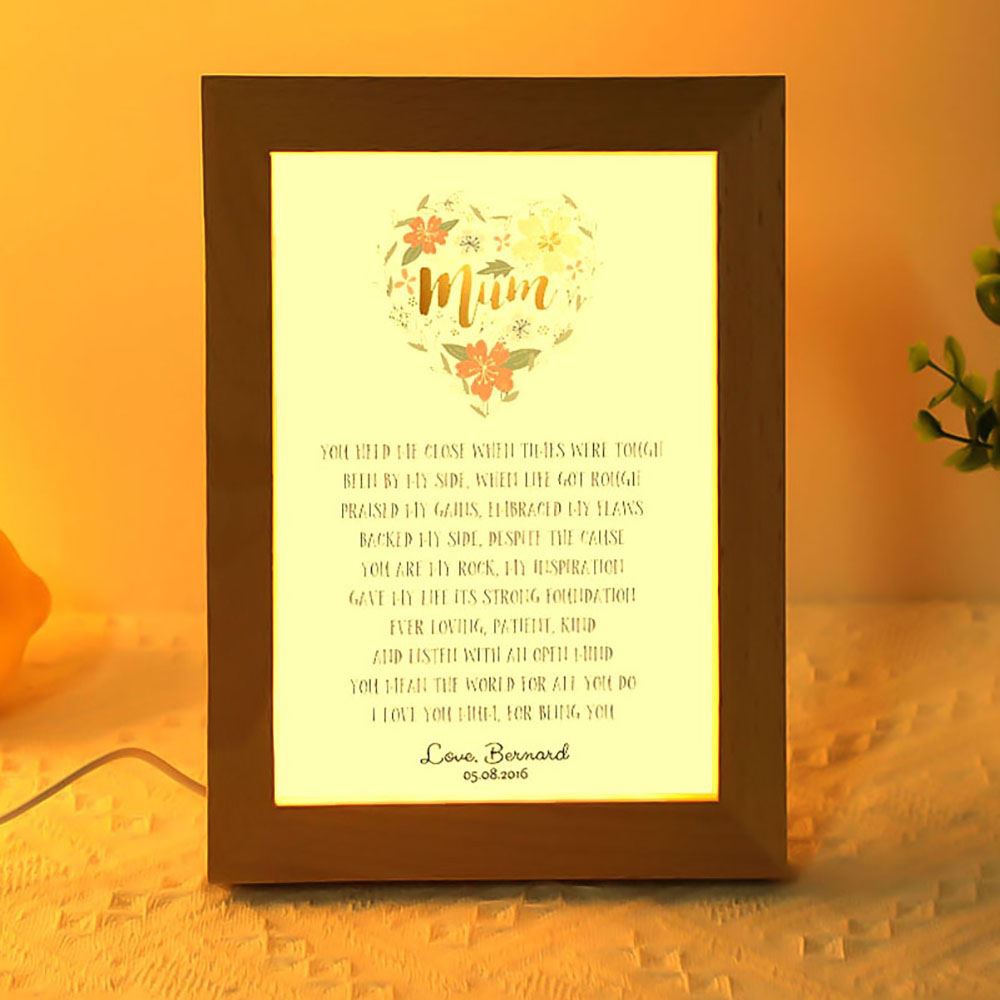 Mum
YOU HELD ME CLOSE WHEN TIMES WERE TOUGH
BEEN BY MY SIDE, WHEN LIFE GOT ROUGH
PRAISED MY GAINS, EMBRACED MY FLAWS
BACKED MY SIDE, DESPITE THE CAUSE
YOU ARE MY ROCK, MY INSPIRATION
GAVE MY LIFE ITS STRONG FOUNDATION
EVER LOVING, PATIENT, KIND
AND LISTEN WITH AN OPEN MIND
YOU MEAN THE WORLD FOR ALL YOU DO
I LOVE YOU MUM, FOR BEING YOU
Love, Bernard
05.08.2016